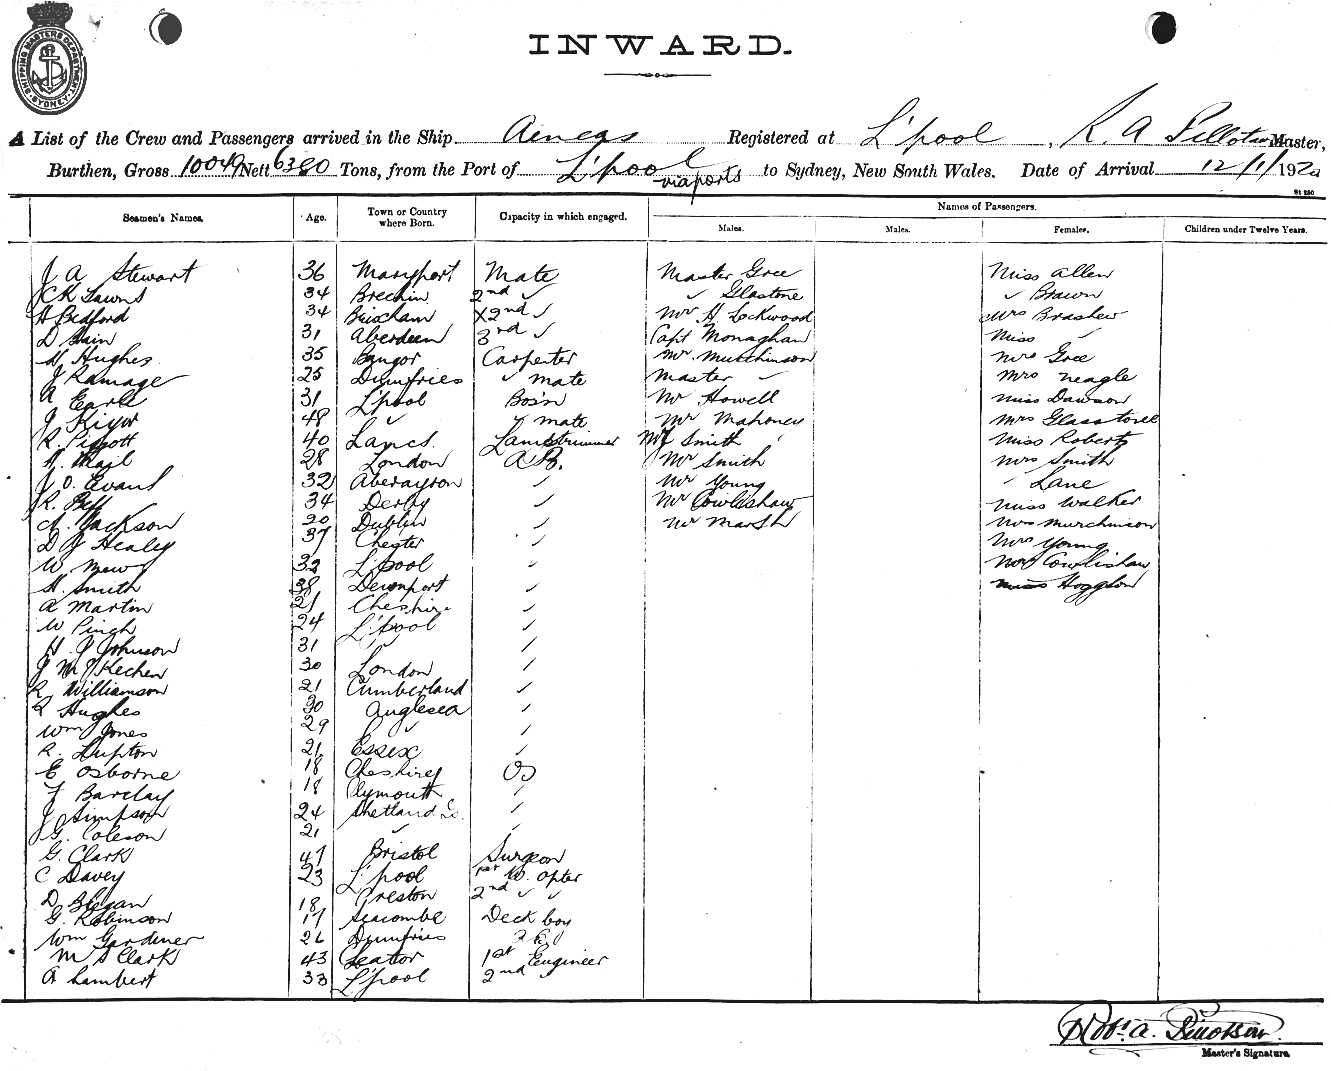 SHIPPING MASTERS DEPARTMENT
SYDNEY
INWARD.
A List of the Crew and Passengers arrived in the Ship Aeneas Registered at L'pool, R. A Master,
Burthen, Gross 10049 Nett 6380 Tons, from the Port of L'pool via ports to Sydney, New South Wales. Date of Arrival 12/1/1920
Names of Passengers.
Seamen's Names. Age. Town or Country where Born. Capacity in which engaged. Males. Males. Females. Children under Twelve Years.
J A Stewart 36 Maryport Mate Master Gree Miss Allen
34 Brechin 2nd ✓ ✓ Glastone ✓ Brawn
H Bedford 34 Brixham X2nd ✓ Mr H Lockwood Mrs Brashew
D 31 Aberdeen 3rd ✓ Capt Monaghan Miss ✓
H Hughes 35 Bangor Carpenter Mr Murchinson Mrs Gree
J Ramage 25 Dumfries ✓ mate Master ✓ Mrs Neagle
A Earle 31 L'pool Bos'n Mr Howell Miss Dawson
J 48 ✓ ✓ mate Mr Mahoney Mrs Glasstone
R. Piggott 40 Lancs. Lamptrimmer Mr Smith Miss Roberts
28 London A B. Mr Smith Mrs Smith
J. O. Evans 32 Aberayron ✓ Mr Young ✓ Lane
R. 34 Derby ✓ Mr Cowlishaw Miss Walker
Jackson Dublin ✓ Mr Marsh Mrs Murchinson
D J Healey 37 Chester ✓ Mrs Young
W. 32 L'pool ✓ Mrs Cowlishaw
H. Smith 38 Devonport ✓ Miss
A Martin 21 Cheshire ✓
W Pinch 24 L'pool ✓
H. J Johnson 31 ✓ ✓
30 London ✓
R. Williamson 21 Cumberland ✓
R Hughes 30 Anglesea ✓
Wm Jones 29 ✓ ✓
R. Lupton 21 Essex ✓
E Osborne 18 Cheshire OS
F Barclay 18 Plymouth ✓
J Simpson 24 Shetland Is. ✓
J G. Coleson 21 ✓ ✓
G. Clark 47 Bristol Surgeon
C Davey 23 L'pool 1st W. Opter
D 18 Preston 2nd ✓ ✓
G. Robinson 17 Seacombe Deck boy
Wm Gardiner 26 Dumfries
M S Clark 43 Seator 1st Engineer
A Lambert 33 L'pool 2nd ✓
Master's Signature.